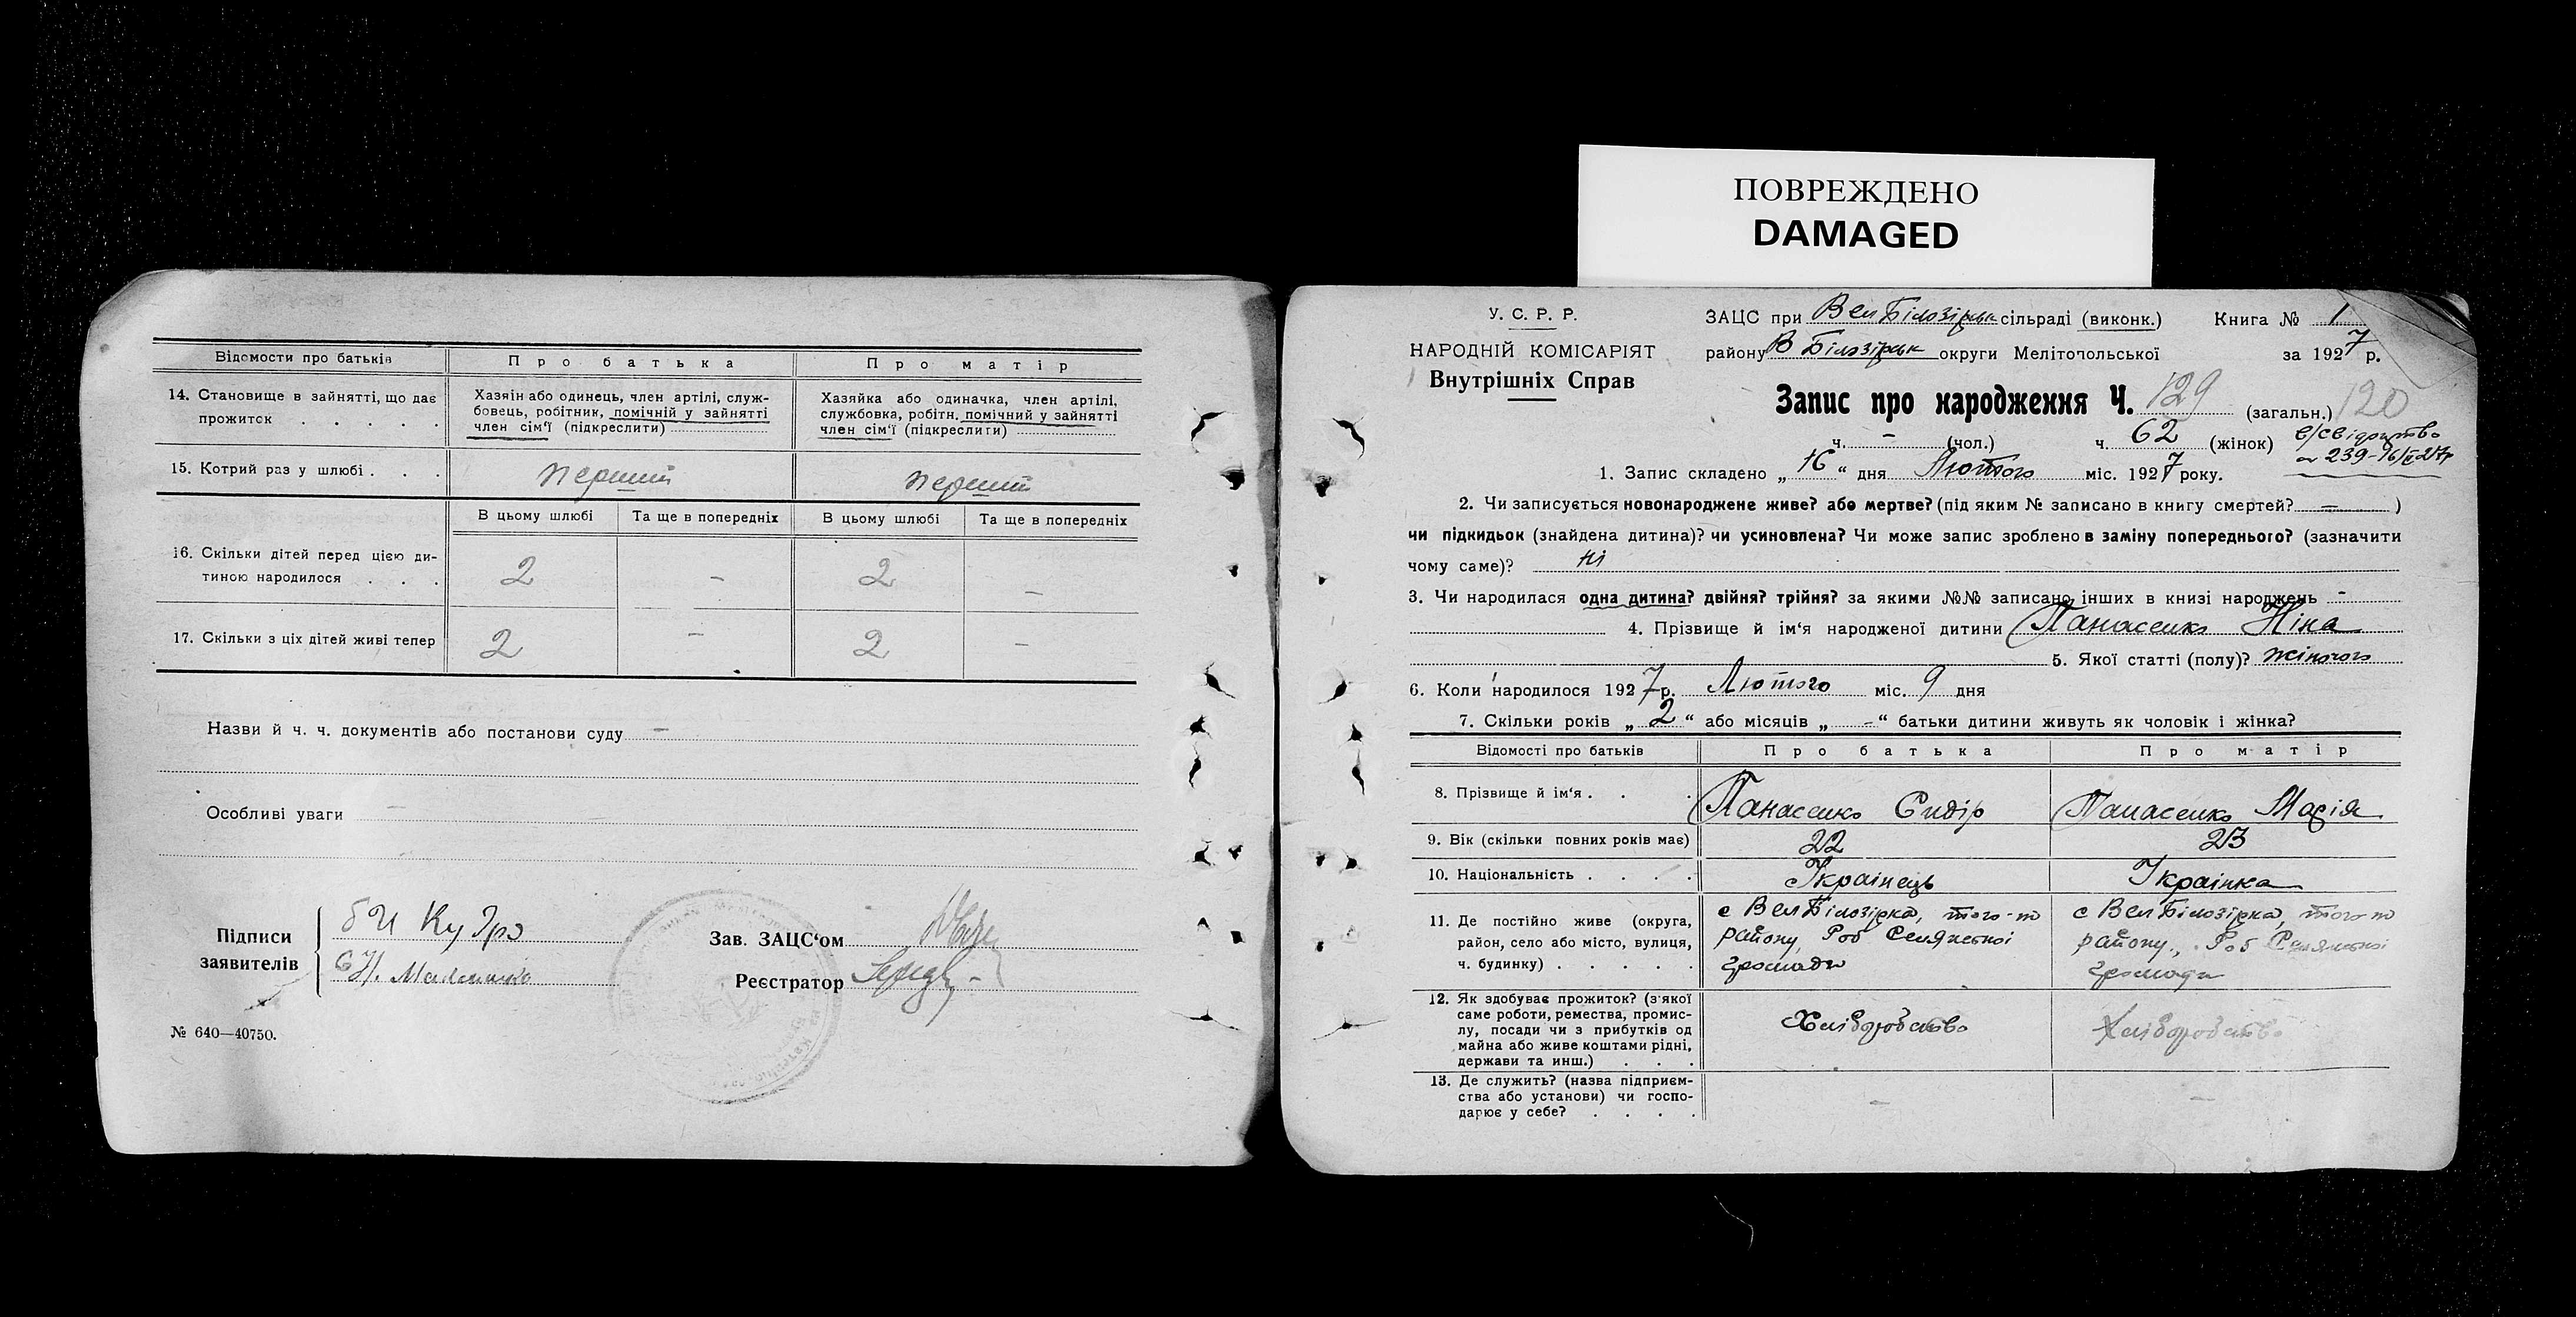 ПОВРЕЖДЕНО
DAMAGED
Відомости про батьків
Про батька
Про матір
14. Становище в зайнятті, що дає прожиток . . . . .
Хазяін або одинець, член артілі, служ-
бовець, робітник, помічній у зайнятті
член сім'ї (підкреслити)
Хазяйка або одиначка, член артілі,
службовка, робітн. помічний у зайнятті
член сім'ї (підкреслити)
15. Котрий раз у шлюбі . . .
перший
перший
В цьому шлюбі
Та ще в попередніх
В цьому шлюбі
Та ще в попередніх
16. Скільки дітей перед цією ди-
тиною народилося . . .
2
-
2
-
17. Скільки з ціх дітей живі тепер
2
-
2
-
Назви й ч. ч. документів або постанови суду -
Особливі уваги -
Підписи
заявителів
Зав. ЗАЦС'ом
Реєстратор
№ 640—40750.
У. С. Р. Р.
НАРОДНІЙ КОМІСАРІЯТ
Внутрішніх Справ
ЗАЦС при Вел Білозірськ сільраді (виконк.) Книга № 1
району В Білозірськ округи Мелітопольської за 1927 р.
Запис про народження Ч. 129 (загальн.) 120
ч. - (чол.) ч. 62 (жінок)
1. Запис складено „ 16 “ дня Лютого міс. 1927 року.
2. Чи записується новонароджене живе? або мертве? (під яким № записано в книгу смертей? - )
чи підкидьок (знайдена дитина)? чи усиновлена? Чи може запис зроблено в заміну попереднього? (зазначити
чому саме)? ні
3. Чи народилася одна дитина? двійня? трійня? за якими №№ записано інших в книзі народжень -
4. Прізвище й ім'я народженої дитини Панасенко Ніна
5. Якої статті (полу)? жіночого
6. Коли народилося 1927 р. Лютого міс. 9 дня
7. Скільки років „ 2 “ або місяців „ - “ батьки дитини живуть як чоловік і жінка?
Відомості про батьків
Про батька
Про матір
8. Прізвище й ім'я . . .
Панасенко Сидір
Панасенко Марія
9. Вік (скільки повних років має)
22
23
10. Національність . . . .
Українець
Українка
11. Де постійно живе (округа,
район, село або місто, вулиця,
ч. будинку) . . . . .
с Вел Білозірка, того-ж
району,
громади
с Вел Білозірка, того-ж
району,
громади
12. Як здобуває прожиток? (з якої
саме роботи, ремества, промис-
лу, посади чи з прибутків од
майна або живе коштами рідні,
держави та инш.) . . .
Хліборобство
Хліборобство
13. Де служить? (назва підприєм-
ства або установи) чи госпо-
дарює у себе? . . . .
-
-